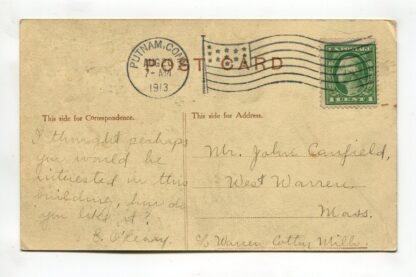 PUTNAM, CONN.
AUG 20
7-AM
1913
POST CARD
U.S. POSTAGE
1 CENT 1
This side for Correspondence.
This side for Address.
I thought perhaps
you would be
interested in this
building, how do
you like it?
Mr. John Canfield,
West Warren,
Mass.
c/o Warren Cotton Mills.